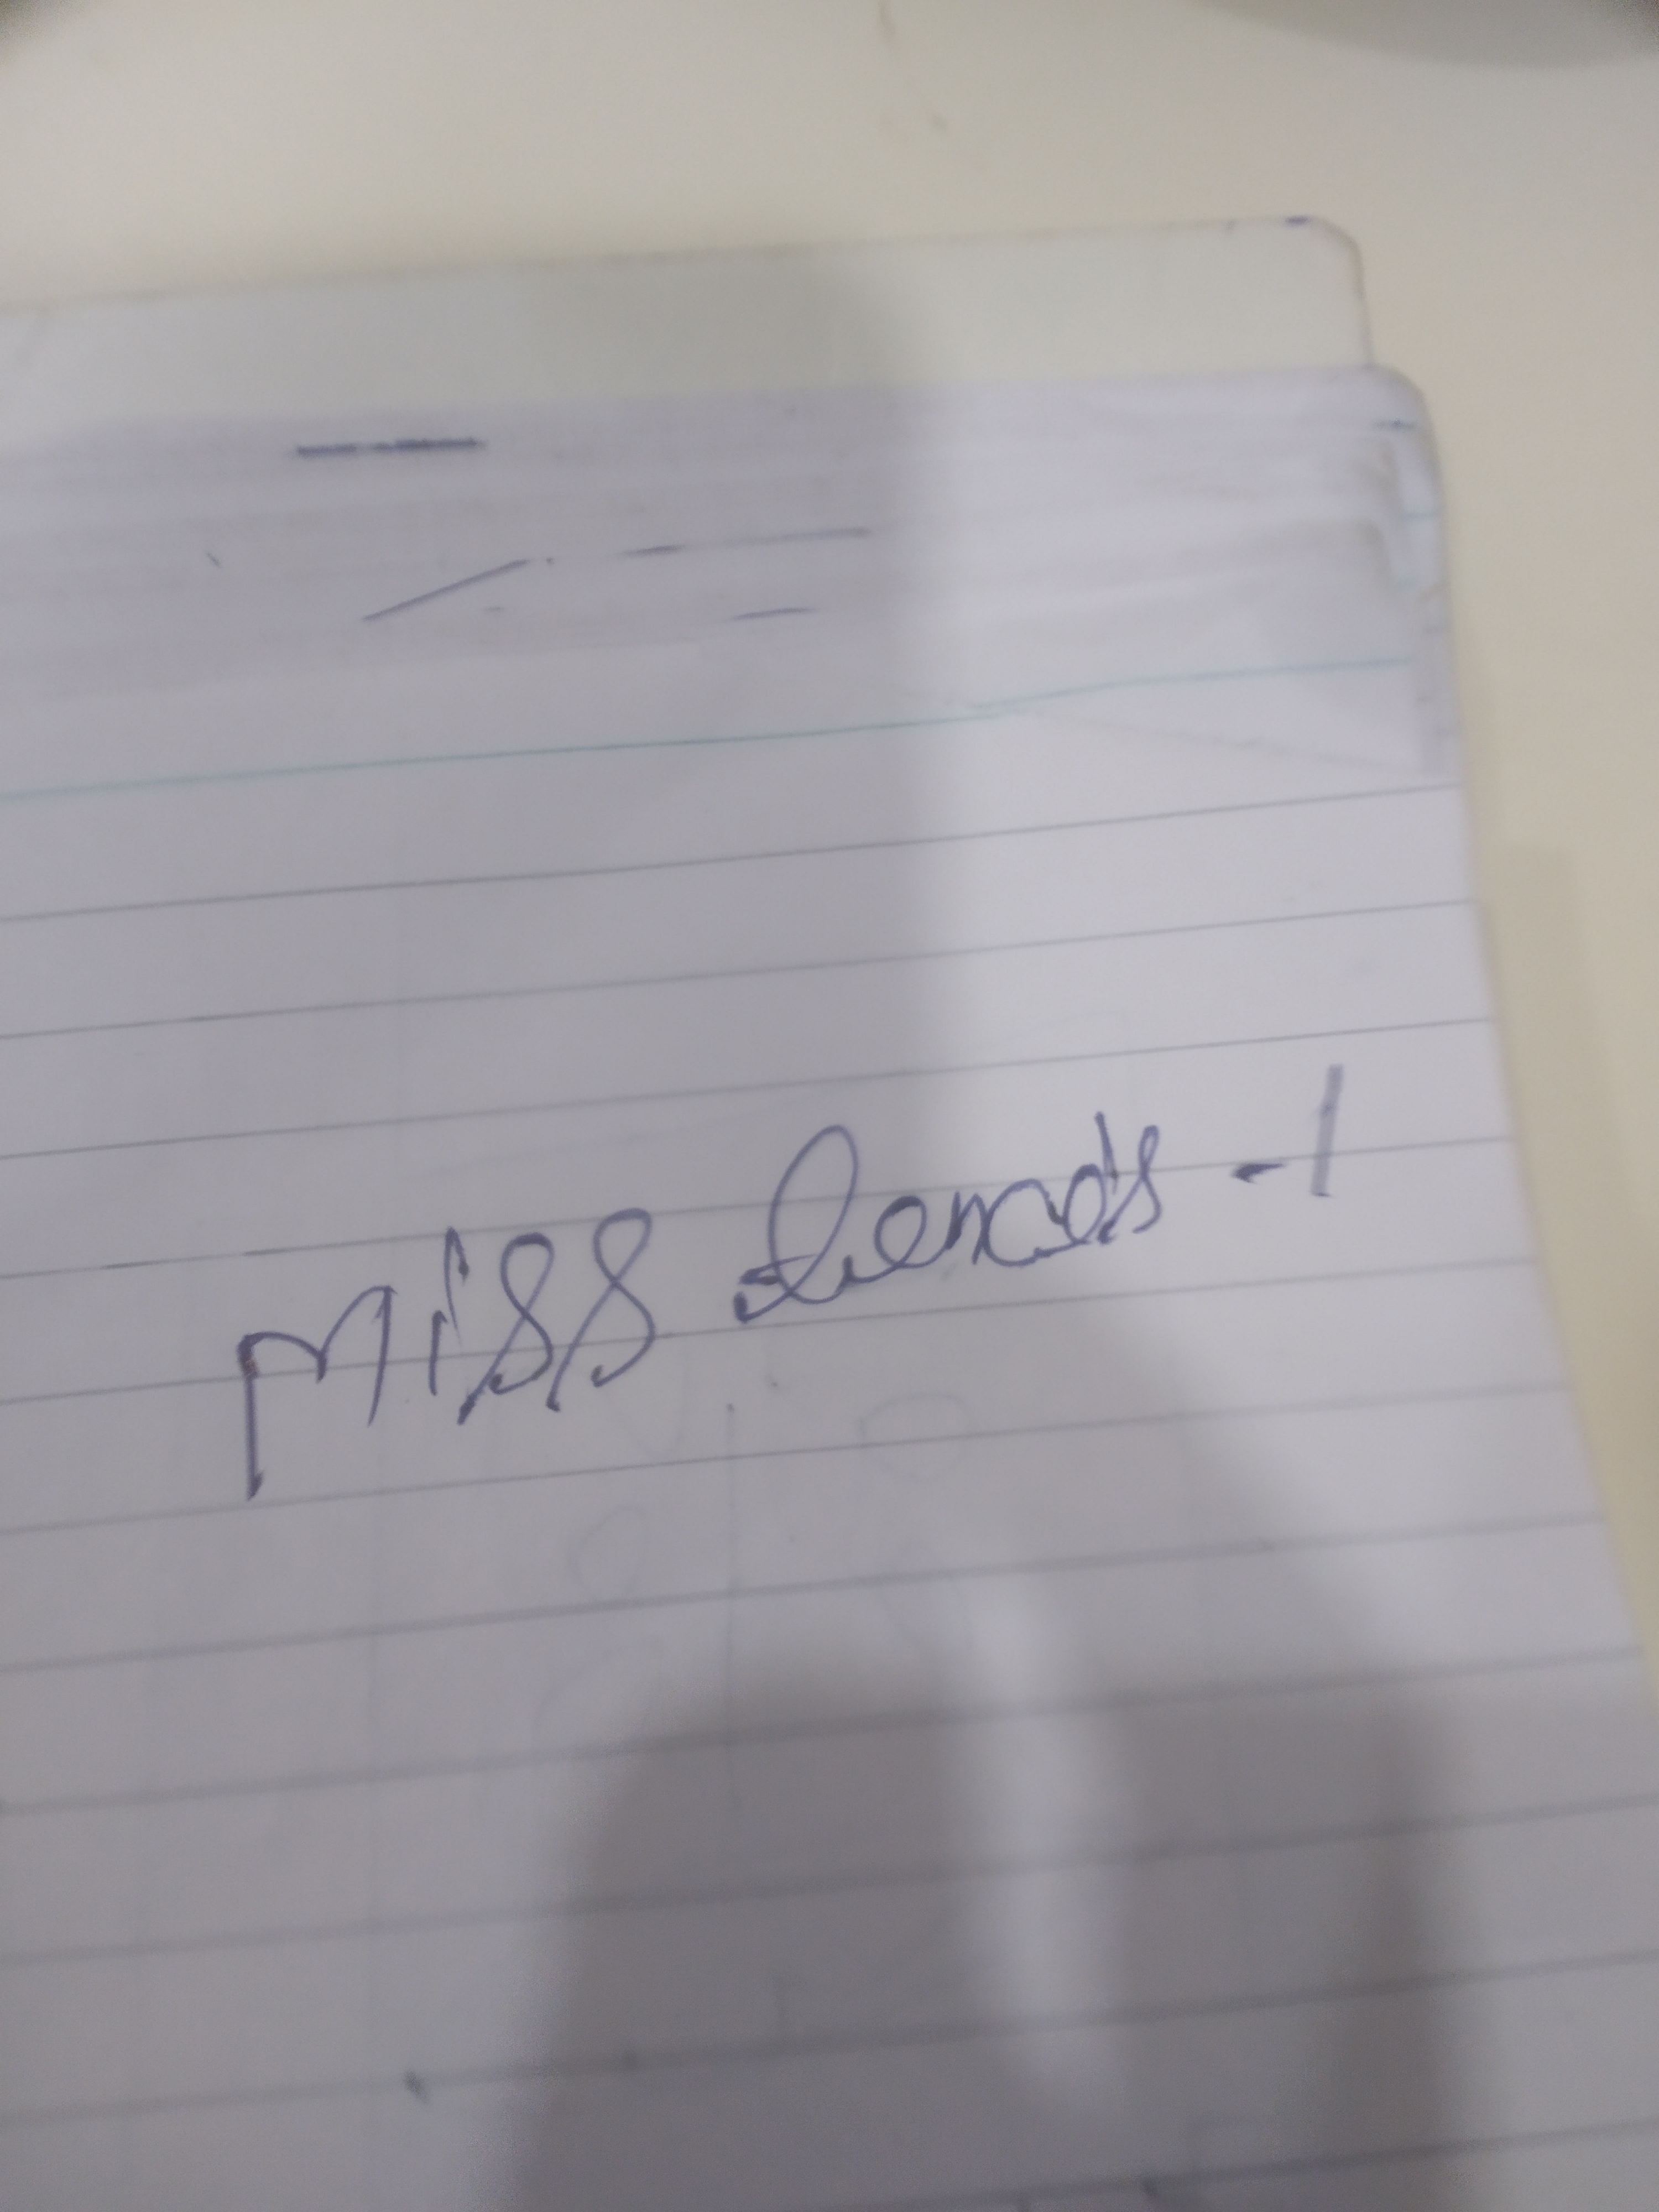 Miss Lead's -1